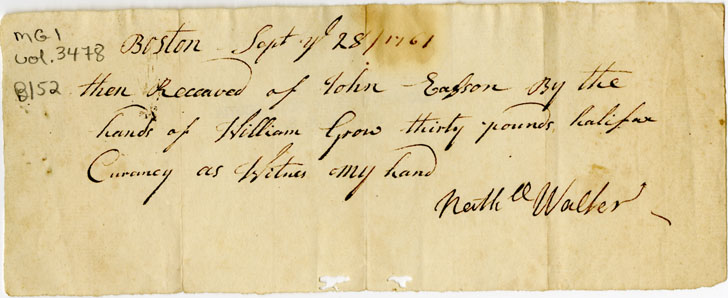 MG1
vol.3478
B152
Boston Sept yᵉ 28/1761
then Receaved of John Easson By the
hands of William Grow thirty pounds halifax
Curancy as Witnes my hand
Nathˡˡ Walker